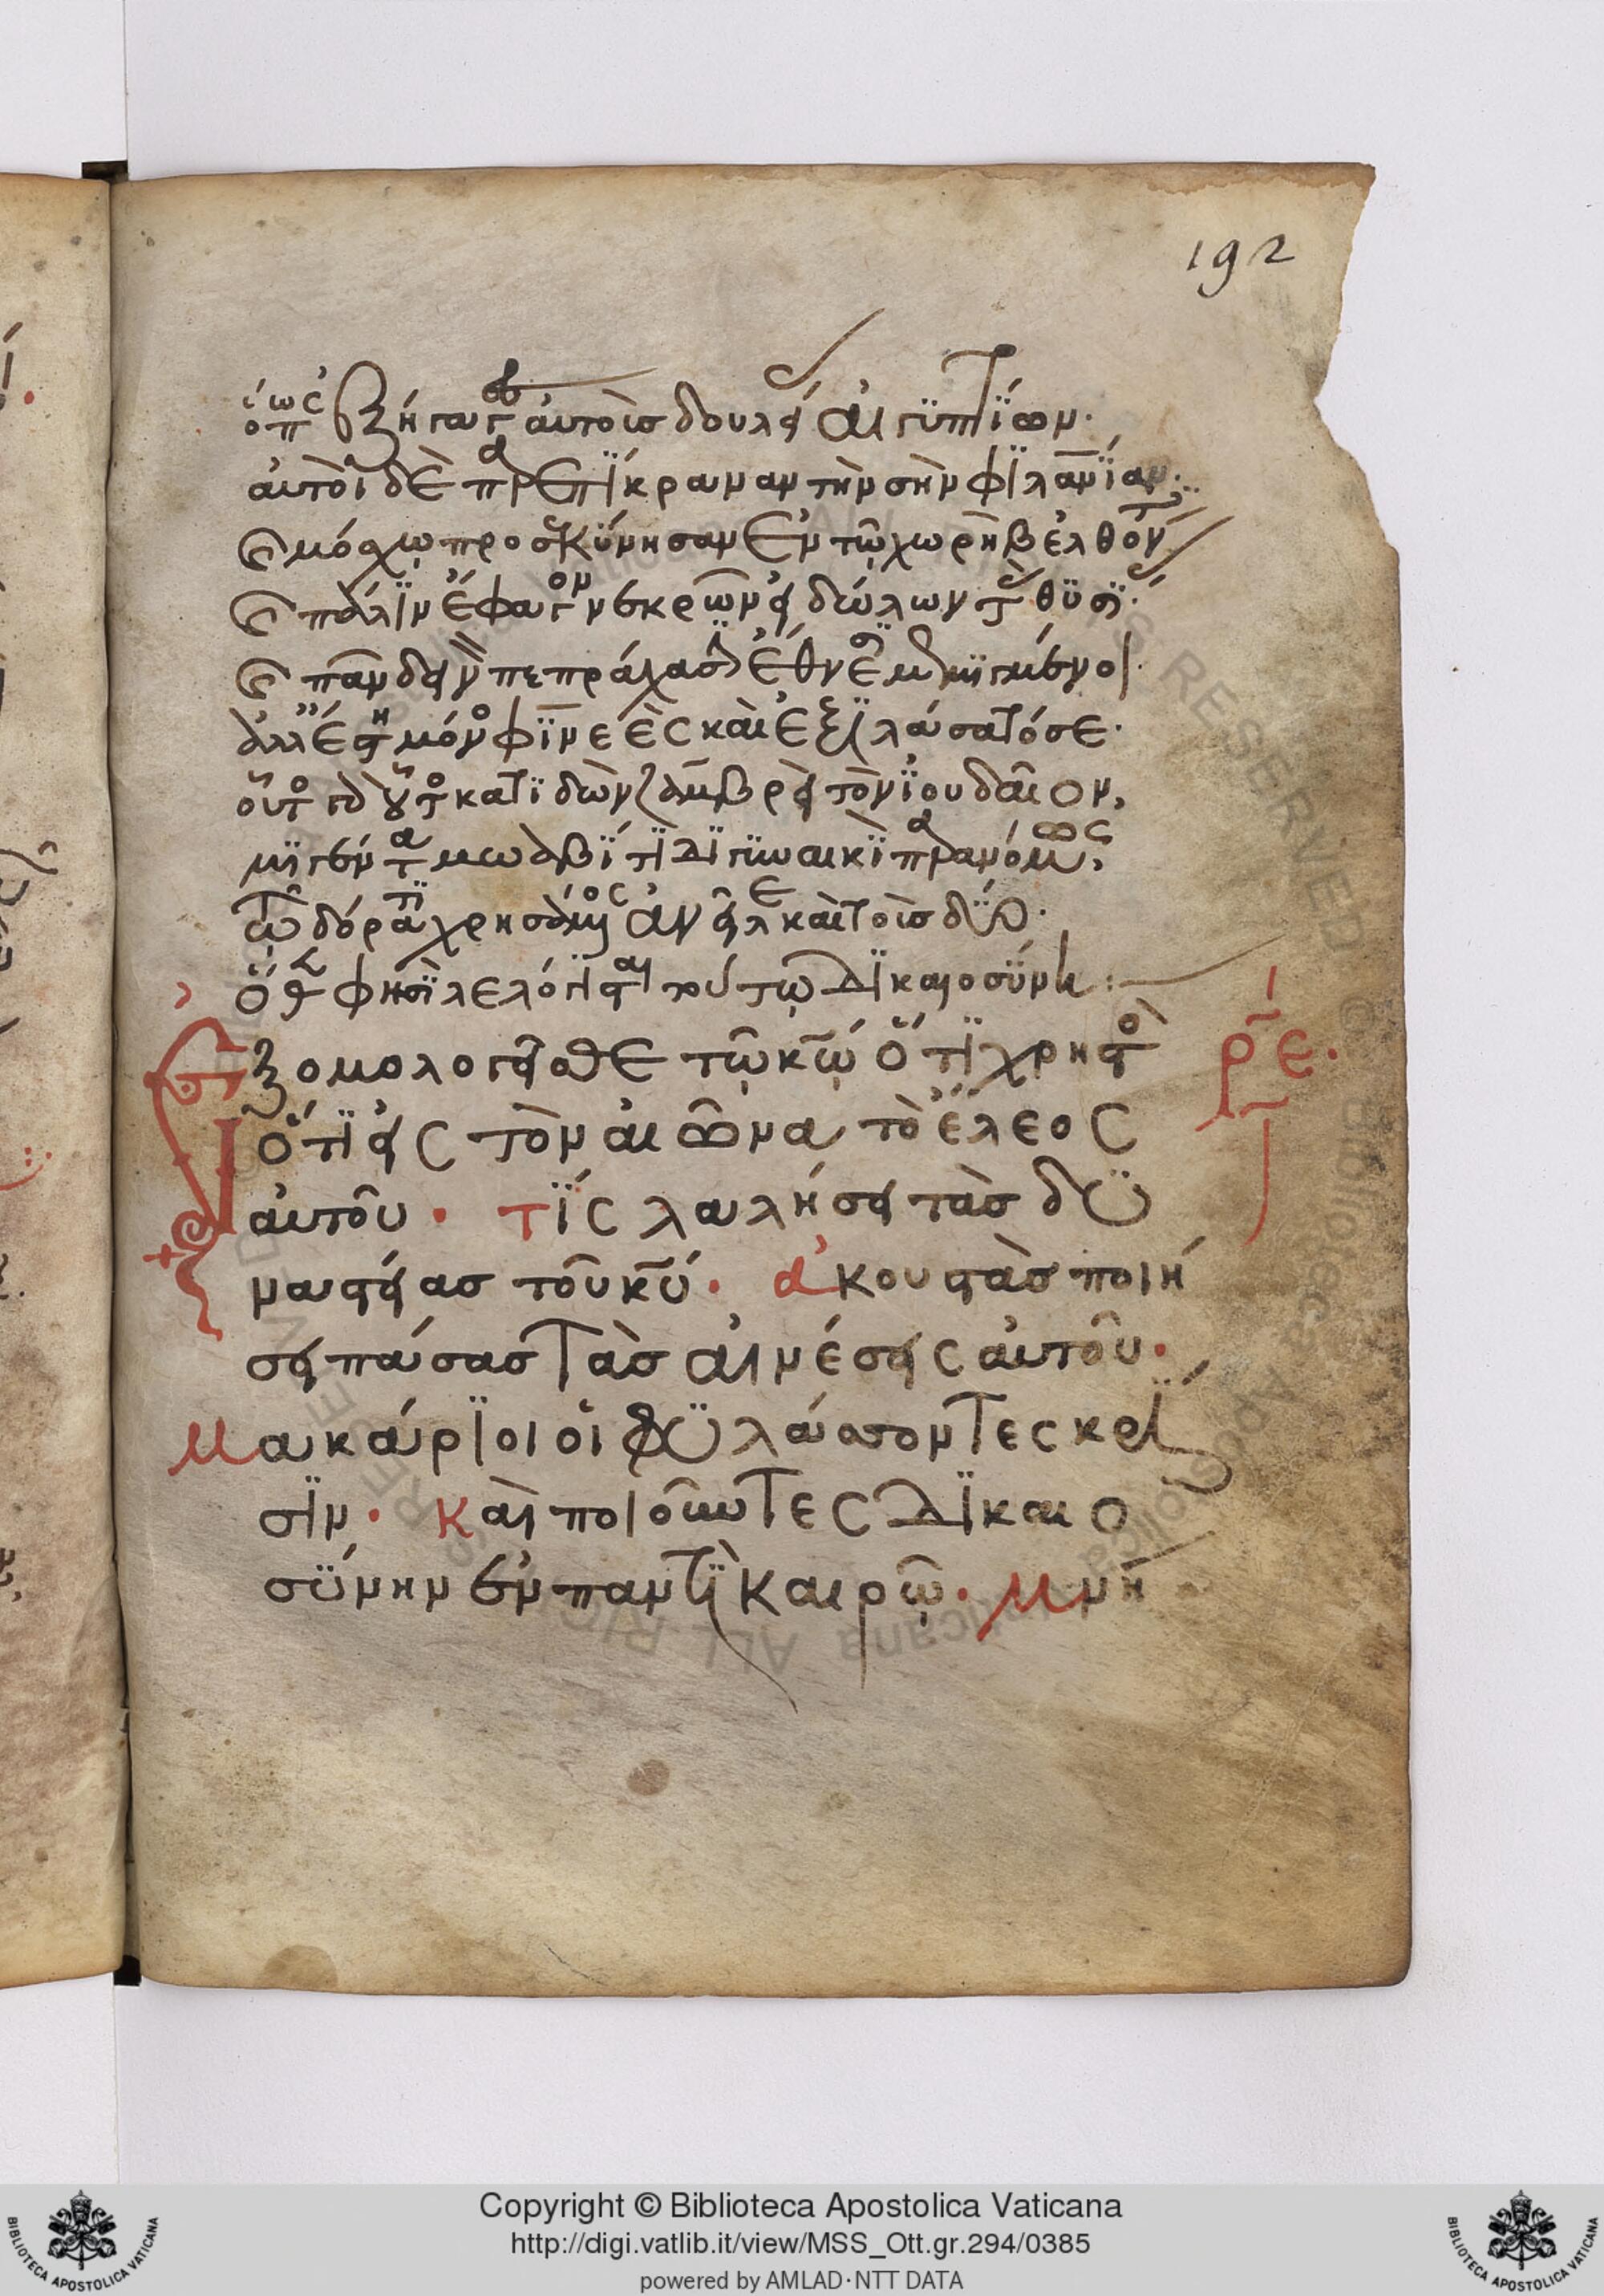 192
ὅπως ἐξήγαγεν αὐτοὺς δουλείας Αἰγυπτίων·
αὐτοὶ δὲ παρεπίκραναν τὴν σὴν φιλανίαν·
μόσχω προσκύνησαν ἐν τῶ χωρὴβ ἐλθόντες
πάλιν ἔφαγον νεκρῶν εἰδώλων τὰς θυσίας·
ἔθνεσι μιγμένοι·
ἀλλ' ἔστη μόνος φινεὲς καὶ ἐξιλάσατό σε·
οὗτος κατιδὼν ζαμβρεὶ τὸν ἰουδαῖον,
μιγέντα μωαβίτιδι γυναικὶ παρανόμως,
τῶ δόρατι χρησάμενος ἀνεῖλε καὶ τοὺς δύο·
ὅς φησι λελόγισται τούτω δικαιοσύνη:
Ἐξομολογεῖσθε τῶ κῶ ὅτι χρηστὸς
ρε·
ὅτι εἰς τὸν αἰῶνα τὸ ἔλεος
αὐτοῦ· τίς λαλήσει τὰς δυ
ναστείας τοῦ κῦ· ἀκουστὰς ποιή
σει πάσας τὰς αἰνέσεις αὐτοῦ·
Μακάριοι οἱ φυλάσσοντες κρί
σιν· καὶ ποιοῦντες δικαιο
σύνην ἐν παντὶ καιρῶ· Μνή
Copyright © Biblioteca Apostolica Vaticana
http://digi.vatlib.it/view/MSS_Ott.gr.294/0385
powered by AMLAD·NTT DATA
BIBLIOTECA APOSTOLICA VATICANA
BIBLIOTECA APOSTOLICA VATICANA